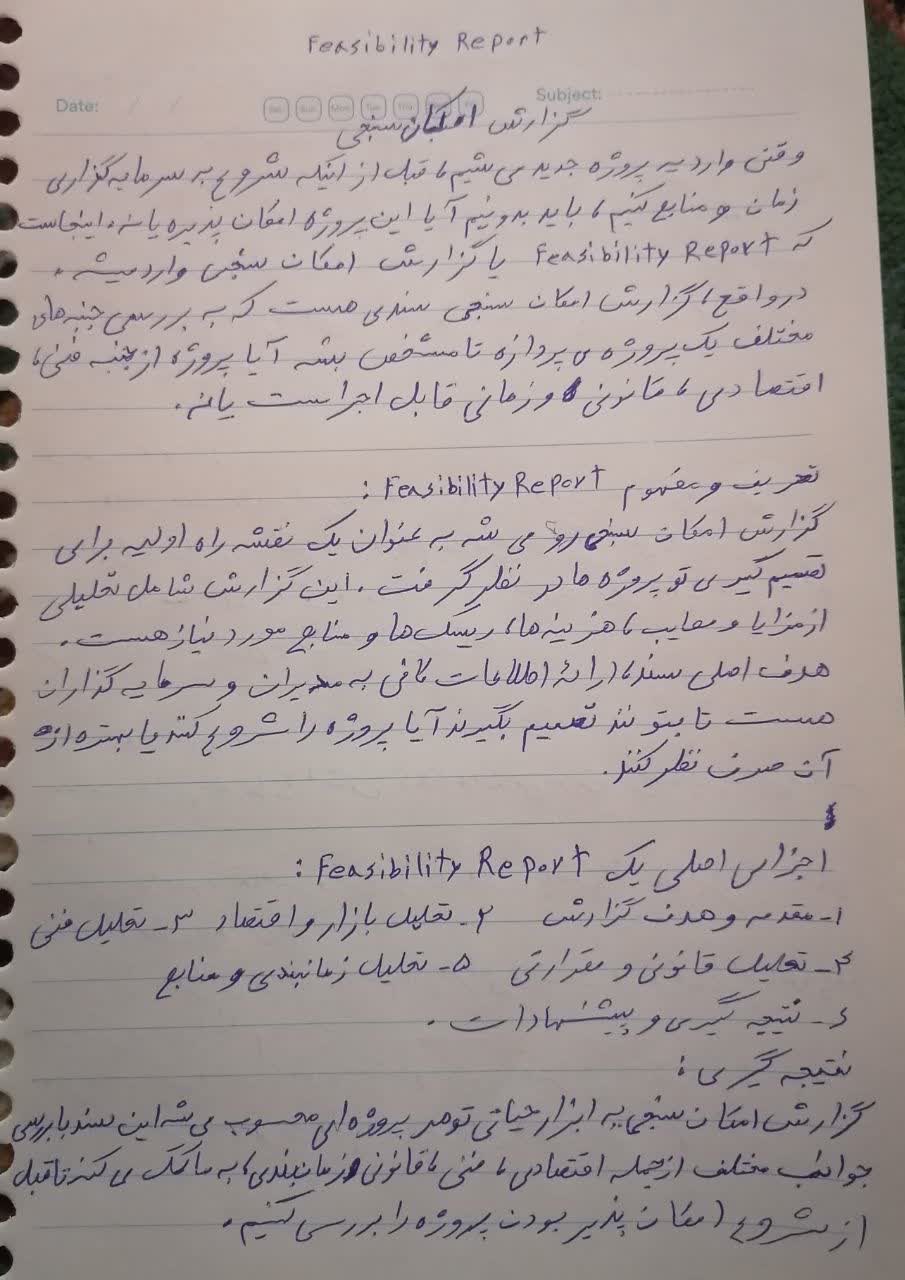 Feasibility Report
Date: / /
Sat Sun Mon Tue Thu
Subject:
گزارش امکان سنجی
وقتی وارد یه پروژه جدید می شیم، قبل از اینکه شروع به سرمایه گزاری
زمان و منابع کنیم، باید بدونیم آیا این پروژه امکان پذیره یا نه. اینجاست
که Feasibility Report یا گزارش امکان سنجی وارد میشه.
در واقع، گزارش امکان سنجی سندی هست که به بررسی جنبه های
مختلف یک پروژه می پردازه تا مشخص بشه آیا پروژه از جنبه فنی،
اقتصادی، قانونی و زمانی قابل اجراست یا نه.
تعریف و مفهوم Feasibility Report :
گزارش امکان سنجی رو می شه به عنوان یک نقشه راه اولیه برای
تصمیم گیری تو پروژه ها در نظر گرفت. این گزارش شامل تحلیلی
از مزایا و معایب، هزینه ها، ریسک ها و منابع مورد نیاز هست.
هدف اصلی سند، ارائهٔ اطلاعات کافی به مدیران و سرمایه گذاران
هست تا بتونند تصمیم بگیرند آیا پروژه را شروع کنند یا بهتره از
آن صرف نظر کنند.
اجزای اصلی یک Feasibility Report :
۱- مقدمه و هدف گزارش ۲- تحلیل بازار و اقتصاد ۳- تحلیل فنی
۴- تحلیل قانونی و مقرراتی ۵- تحلیل زمانبندی و منابع
۶- نتیجه گیری و پیشنهادات.
نتیجه گیری :
گزارش امکان سنجی یه ابزار حیاتی تو هر پروژه ای محسوب می شه این سند با بررسی
جوانب مختلف از جمله اقتصادی، فنی، قانونی و زمان بندی، به ما کمک می کند تا قبل
از شروع امکان پذیر بودن پروژه را بررسی کنیم.